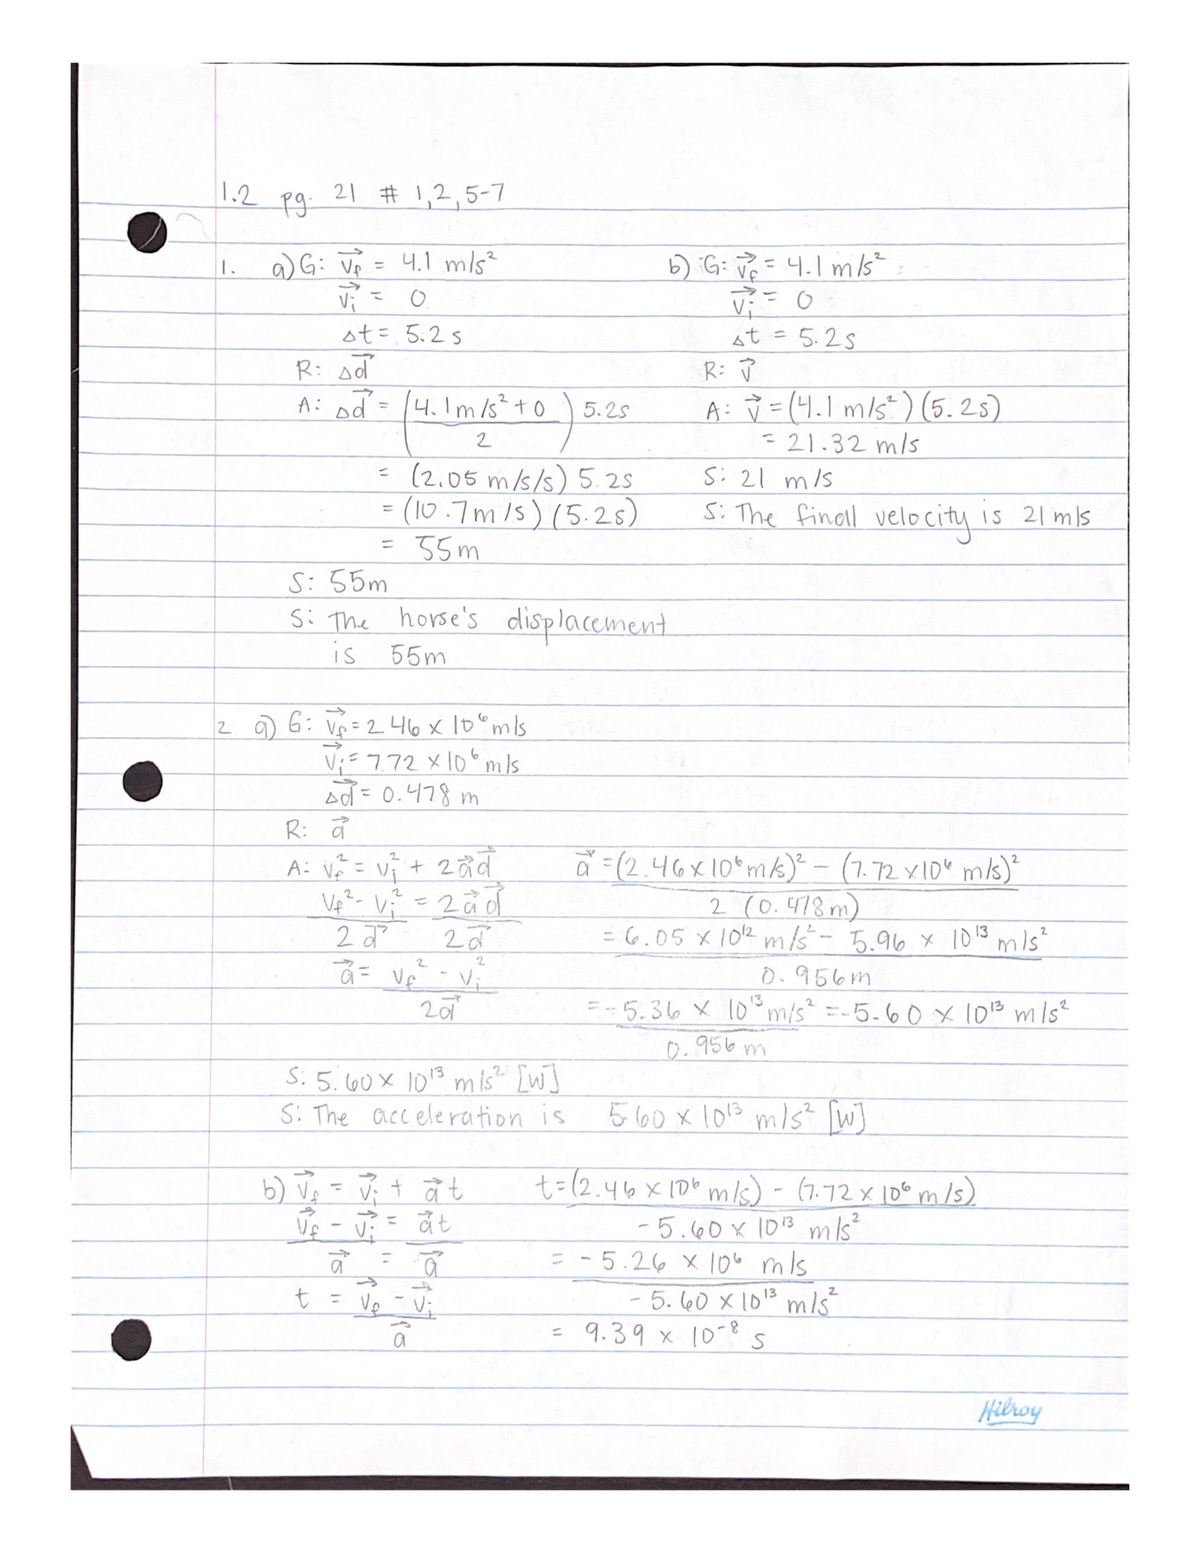 1.2 pg. 21 # 1,2,5-7
1. a) G: v⃗f = 4.1 m/s²
v⃗i = 0
Δt = 5.2 s
R: Δd⃗
A: Δd⃗ = (4.1 m/s² + 0 / 2) 5.2s
= (2.05 m/s/s) 5.2s
= (10.7 m/s) (5.2s)
= 55m
S: 55m
S: The horse's displacement
is 55m
b) G: v⃗f = 4.1 m/s²
v⃗i = 0
Δt = 5.2s
R: v⃗
A: v⃗ = (4.1 m/s²) (5.2s)
= 21.32 m/s
S: 21 m/s
S: The finall velocity is 21 m/s
2 a) G: v⃗f = 2.46 x 10⁶ m/s
v⃗i = 7.72 x 10⁶ m/s
Δd⃗ = 0.478 m
R: a⃗
A: vf² = vi² + 2a⃗d⃗
vf² - vi² / 2d⃗ = 2a⃗d⃗ / 2d⃗
a⃗ = vf² - vi² / 2d⃗
a⃗ = (2.46 x 10⁶ m/s)² - (7.72 x 10⁶ m/s)² / 2 (0.478m)
= 6.05 x 10¹² m/s² - 5.96 x 10¹³ m/s² / 0.956m
= -5.36 x 10¹³ m/s² / 0.956 m = -5.60 x 10¹³ m/s²
S: 5.60 x 10¹³ m/s² [W]
S: The acceleration is 5.60 x 10¹³ m/s² [W]
b) v⃗f = v⃗i + a⃗t
v⃗f - v⃗i / a⃗ = a⃗t / a⃗
t = v⃗f - v⃗i / a⃗
t = (2.46 x 10⁶ m/s) - (7.72 x 10⁶ m/s) / -5.60 x 10¹³ m/s²
= -5.26 x 10⁶ m/s / -5.60 x 10¹³ m/s²
= 9.39 x 10⁻⁸ s
Hilroy